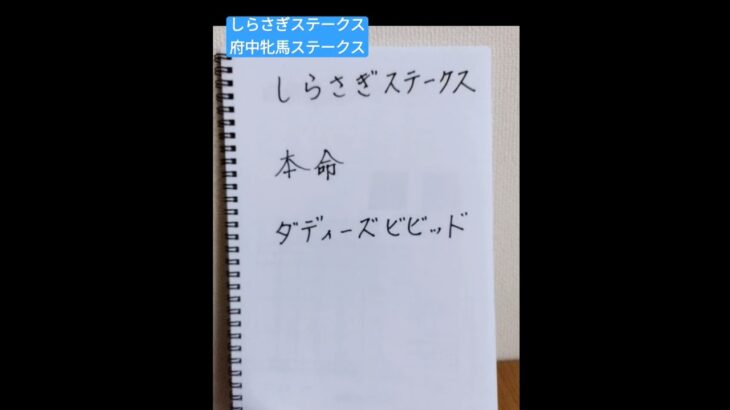 しらさぎステークス
府中牝馬ステークス
しらさぎステークス
本命
ダディーズビビッド